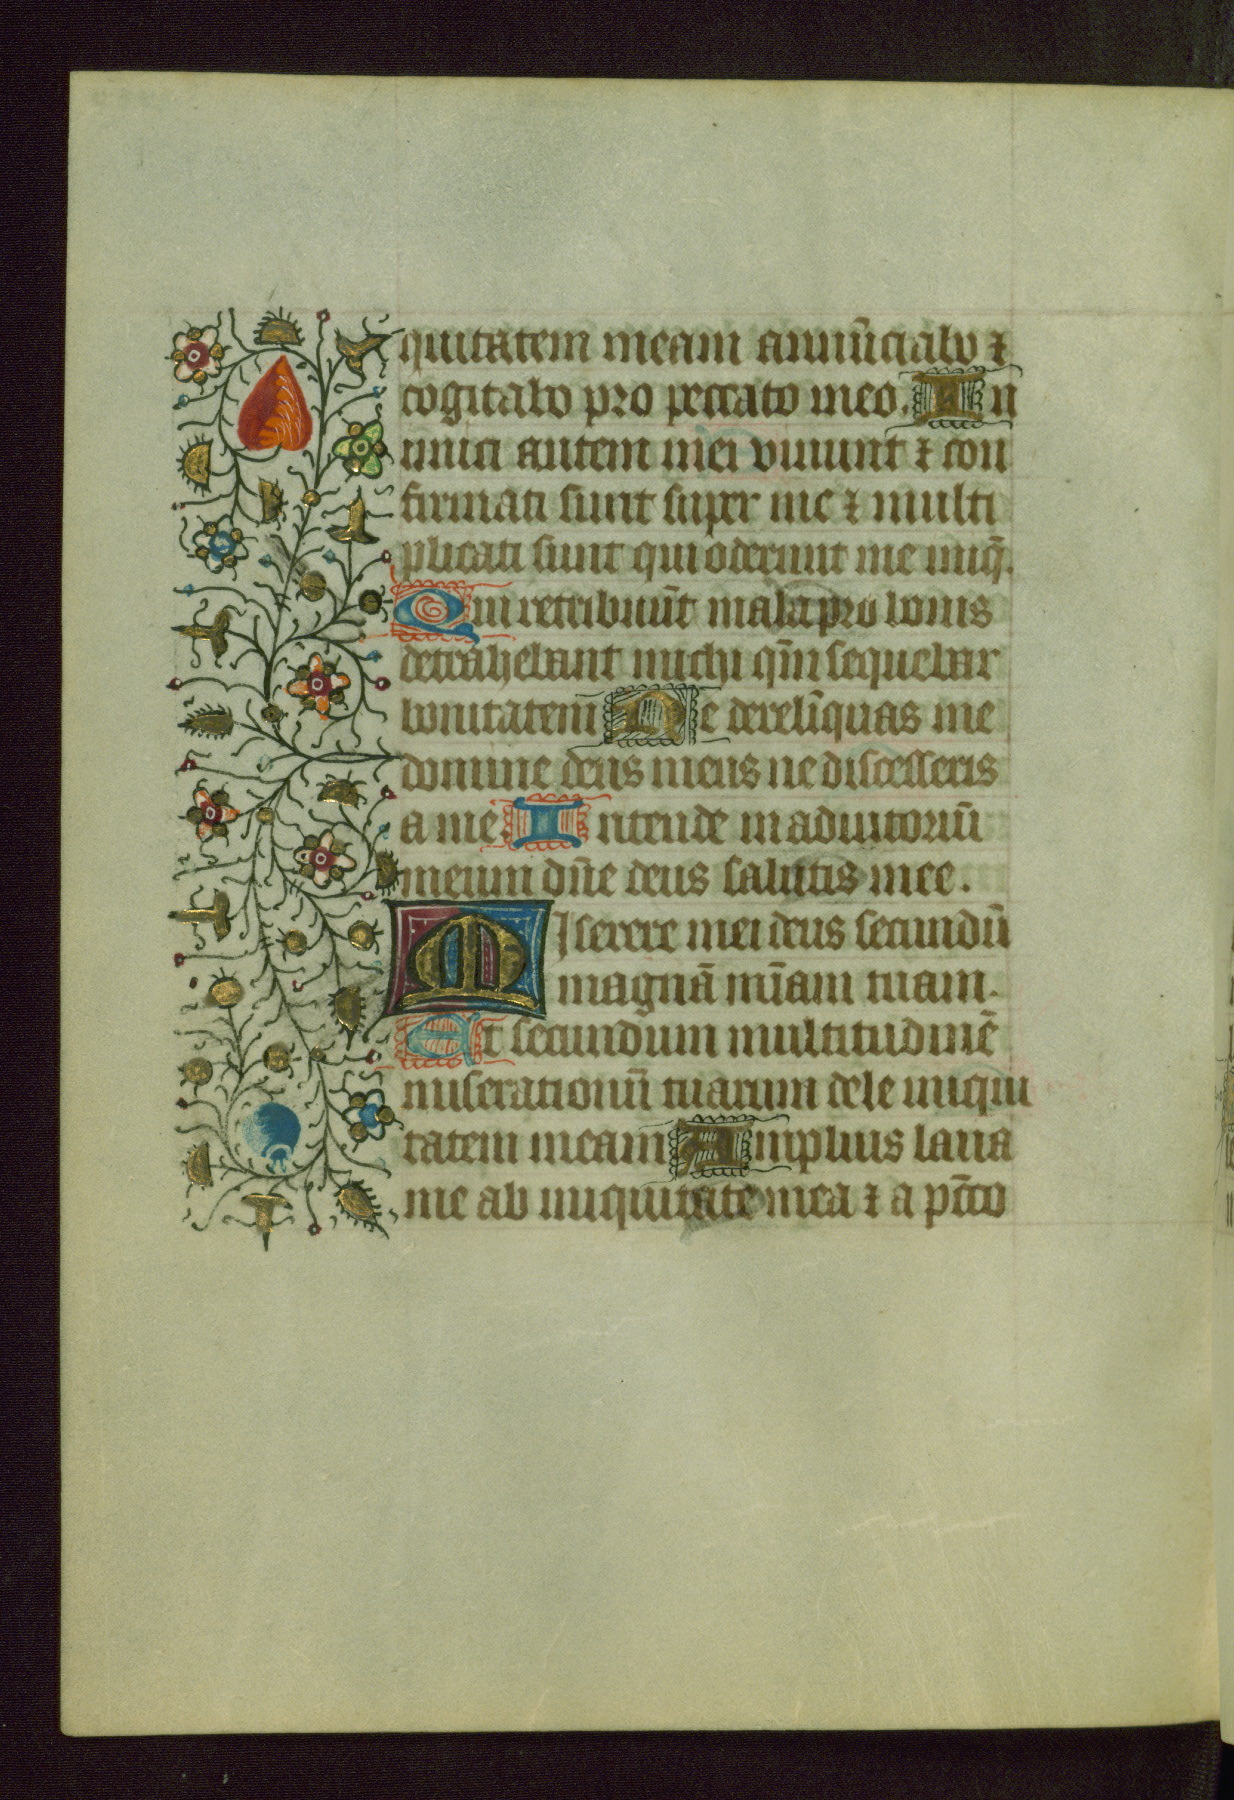 quitatem meam annūciabo ⁊
cogitabo pro peccato meo. In
imici autem mei viuunt ⁊ con
firmati sunt super me ⁊ multi
plicati sunt qui oderunt me iniq̄.
Qui retribuūt mala pro bonis
detrahebant michi qm̄ sequebar
bonitatem Ne derelīquas me
domine deus meus ne discesseris
a me. Intende in adiutoriū
meum dn̄e deus salutis mee.
Miserere mei deus secundū
magnā mīam tuam.
Et secundum multitudinē
miserationū tuarum dele iniqui
tatem meam Amplius laua
me ab iniquitate mea ⁊ a pc̄cto